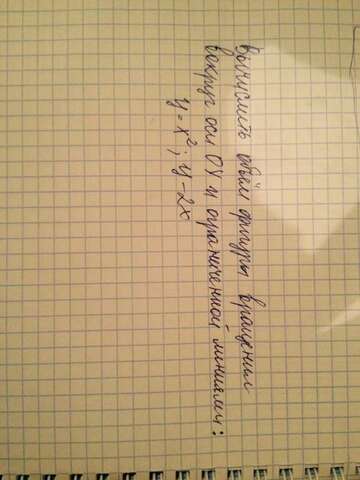 Вычислить объём фигуры вращения
вокруг оси OY и ограниченной линиями:
y = x²; y - 2x